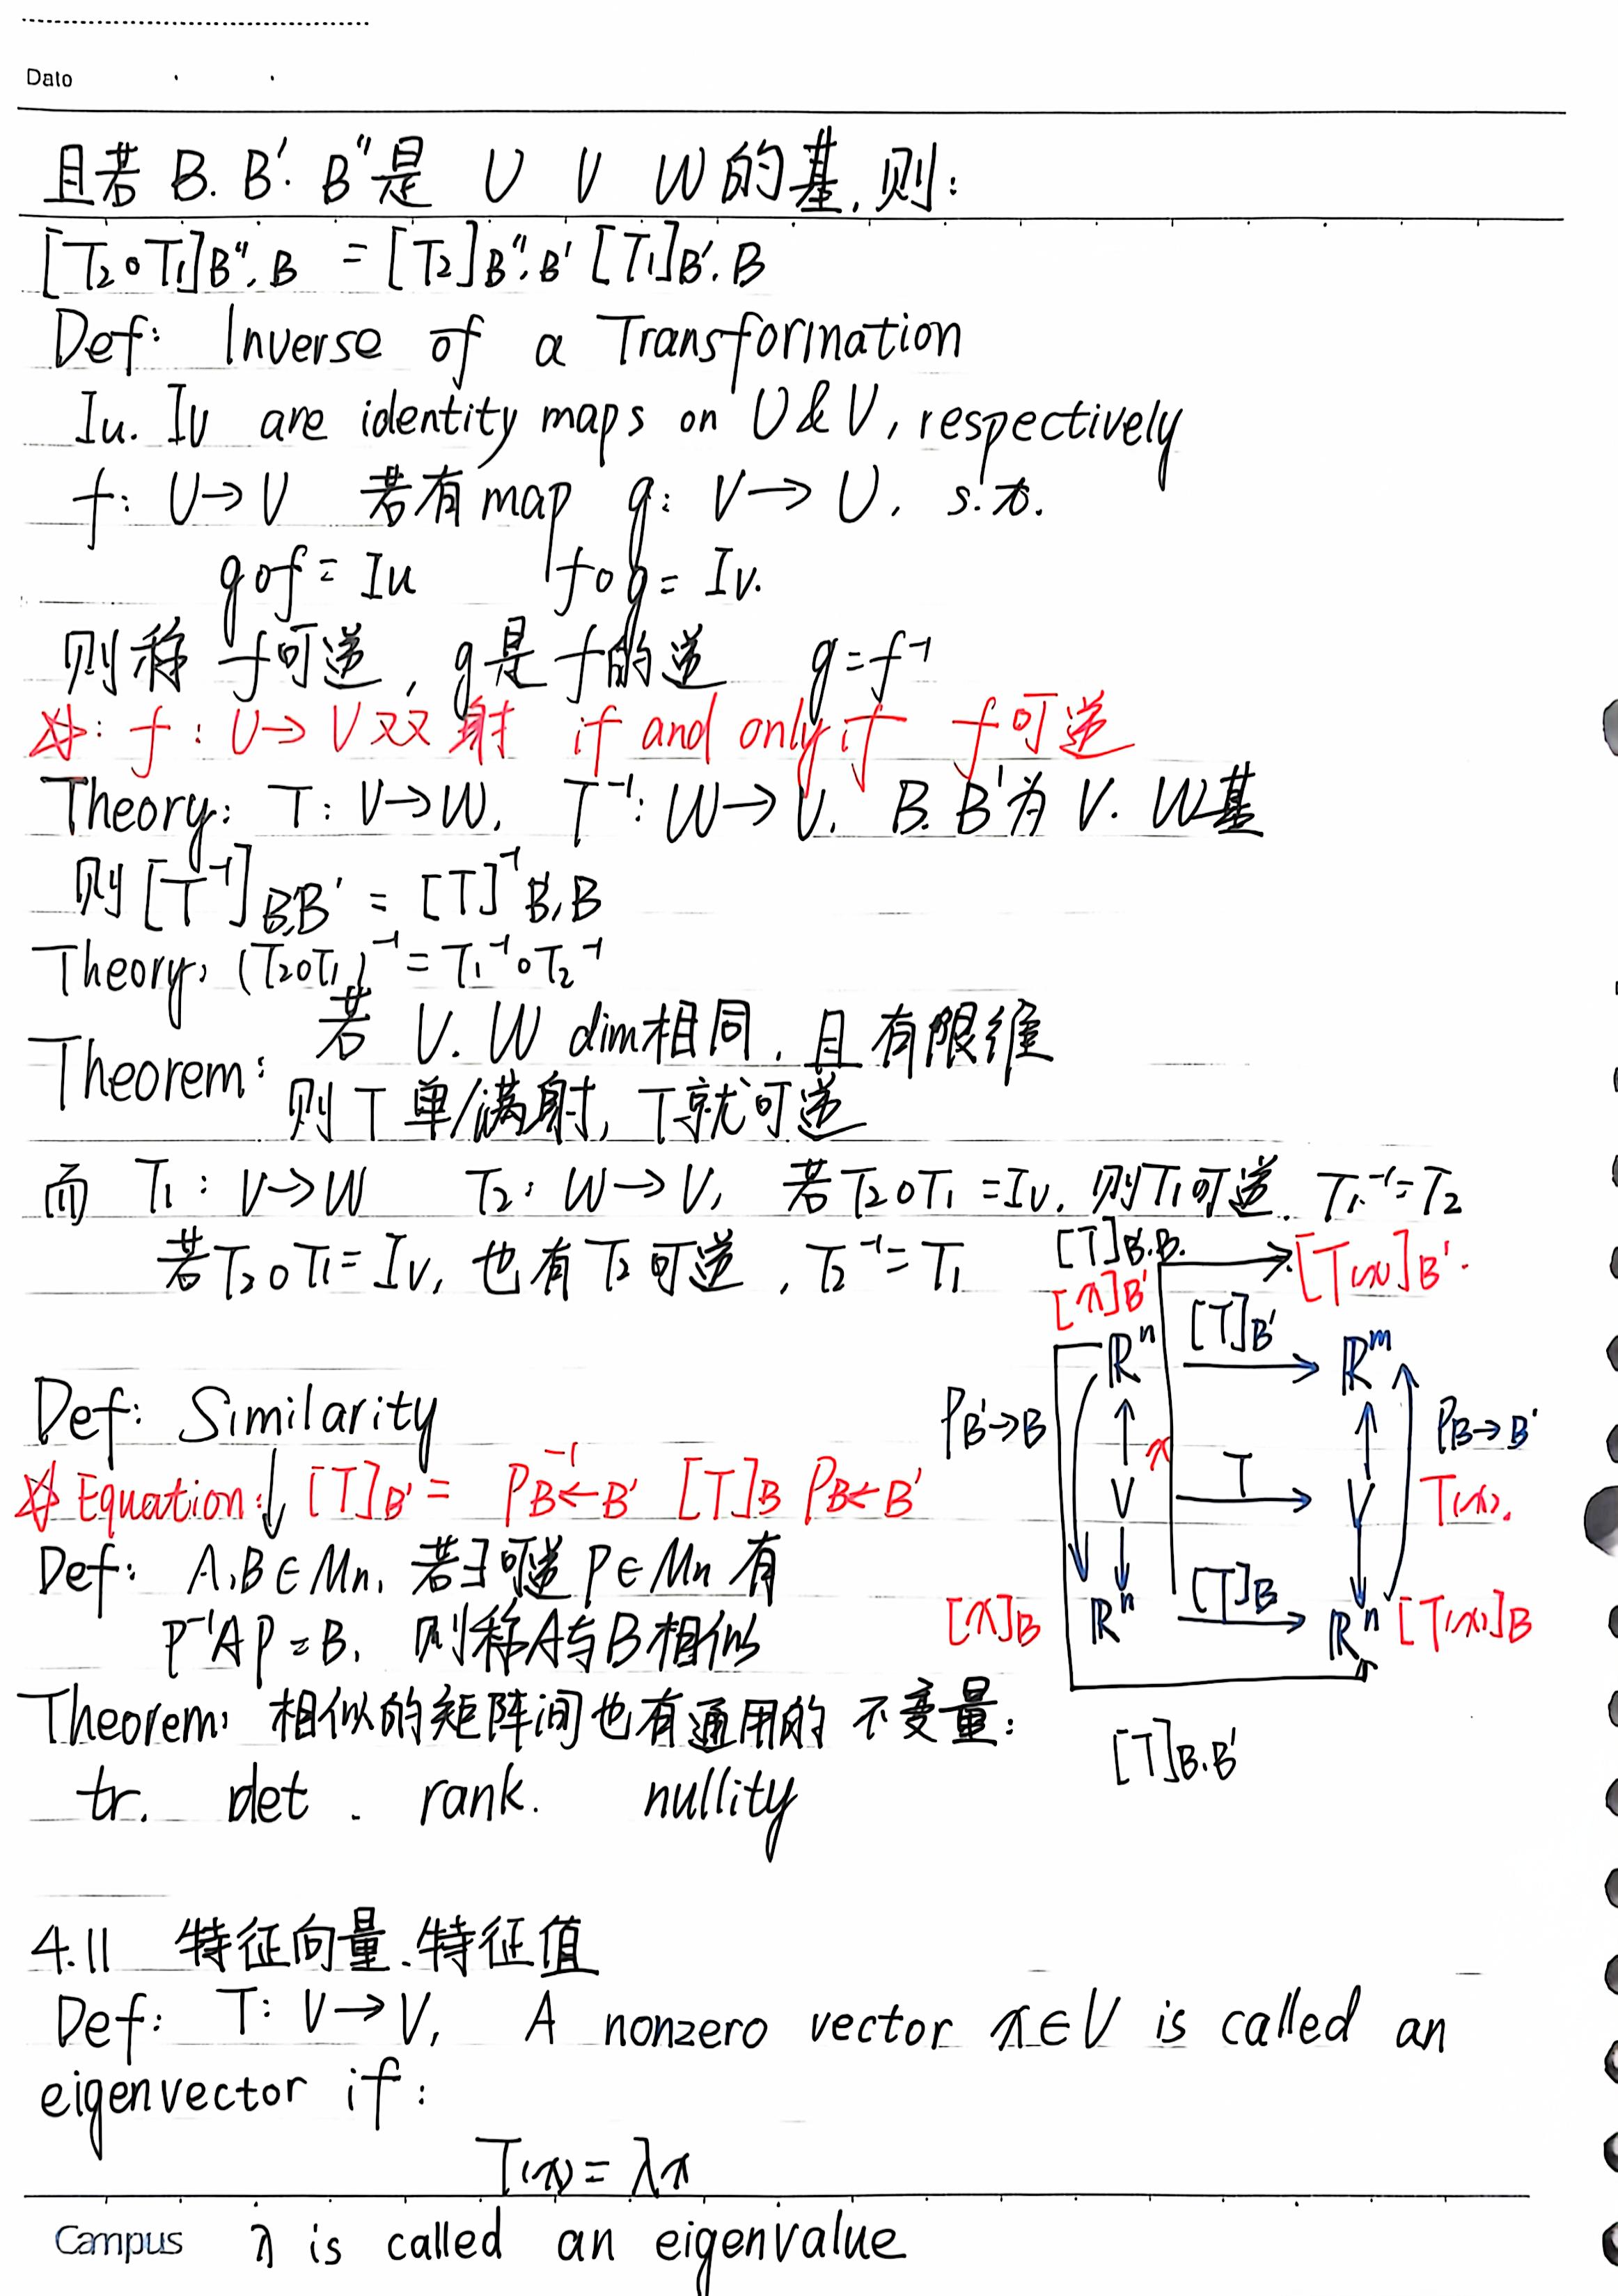 Date
且若 B. B′. B″是 U V W 的基, 则:
[T₂∘T₁]B″,B = [T₂]B″,B′ [T₁]B′.B
Def: Inverse of a Transformation
Iu. Iv are identity maps on U & V, respectively
f: U→V 若有 map g: V→U, s.t.
g∘f = Iu f∘g = Iv.
则称 f可逆, g是 f的逆 g=f⁻¹
☆: f: U→V 双射 if and only if f可逆
Theory: T: V→W, T⁻¹: W→V, B. B′为 V. W基
则 [T⁻¹]B,B′ = [T]⁻¹B′,B
Theory: (T₂∘T₁)⁻¹ = T₁⁻¹∘T₂⁻¹
Theorem: 若 V. W dim相同, 且有限维
则 T 单/满射, T就可逆
而 T₁: V→W T₂: W→V, 若T₂∘T₁=Iv, 则T₁可逆. T₁⁻¹=T₂
若T₂∘T₁=Iv, 也有 T₂可逆, T₂⁻¹=T₁
[T]B′.B. → [T(x)]B′.
[x]B′
Rⁿ [T]B′ → Rᵐ
Def: Similarity
PB′→B x T PB→B′
V → V T(x).
☆ Equation:↓ [T]B′ = P⁻¹B←B′ [T]B PB←B′
Def: A,B∈Mn, 若∃可逆 P∈Mn 有
[x]B Rⁿ [T]B → Rⁿ [T(x)]B
P⁻¹AP=B, 则称A与B相似
Theorem: 相似的矩阵间也有通用的 不变量:
[T]B.B′
tr. det. rank. nullity
4.11 特征向量、特征值
Def: T: V→V, A nonzero vector x∈V is called an
eigenvector if:
T(x) = λx
Campus λ is called an eigenvalue